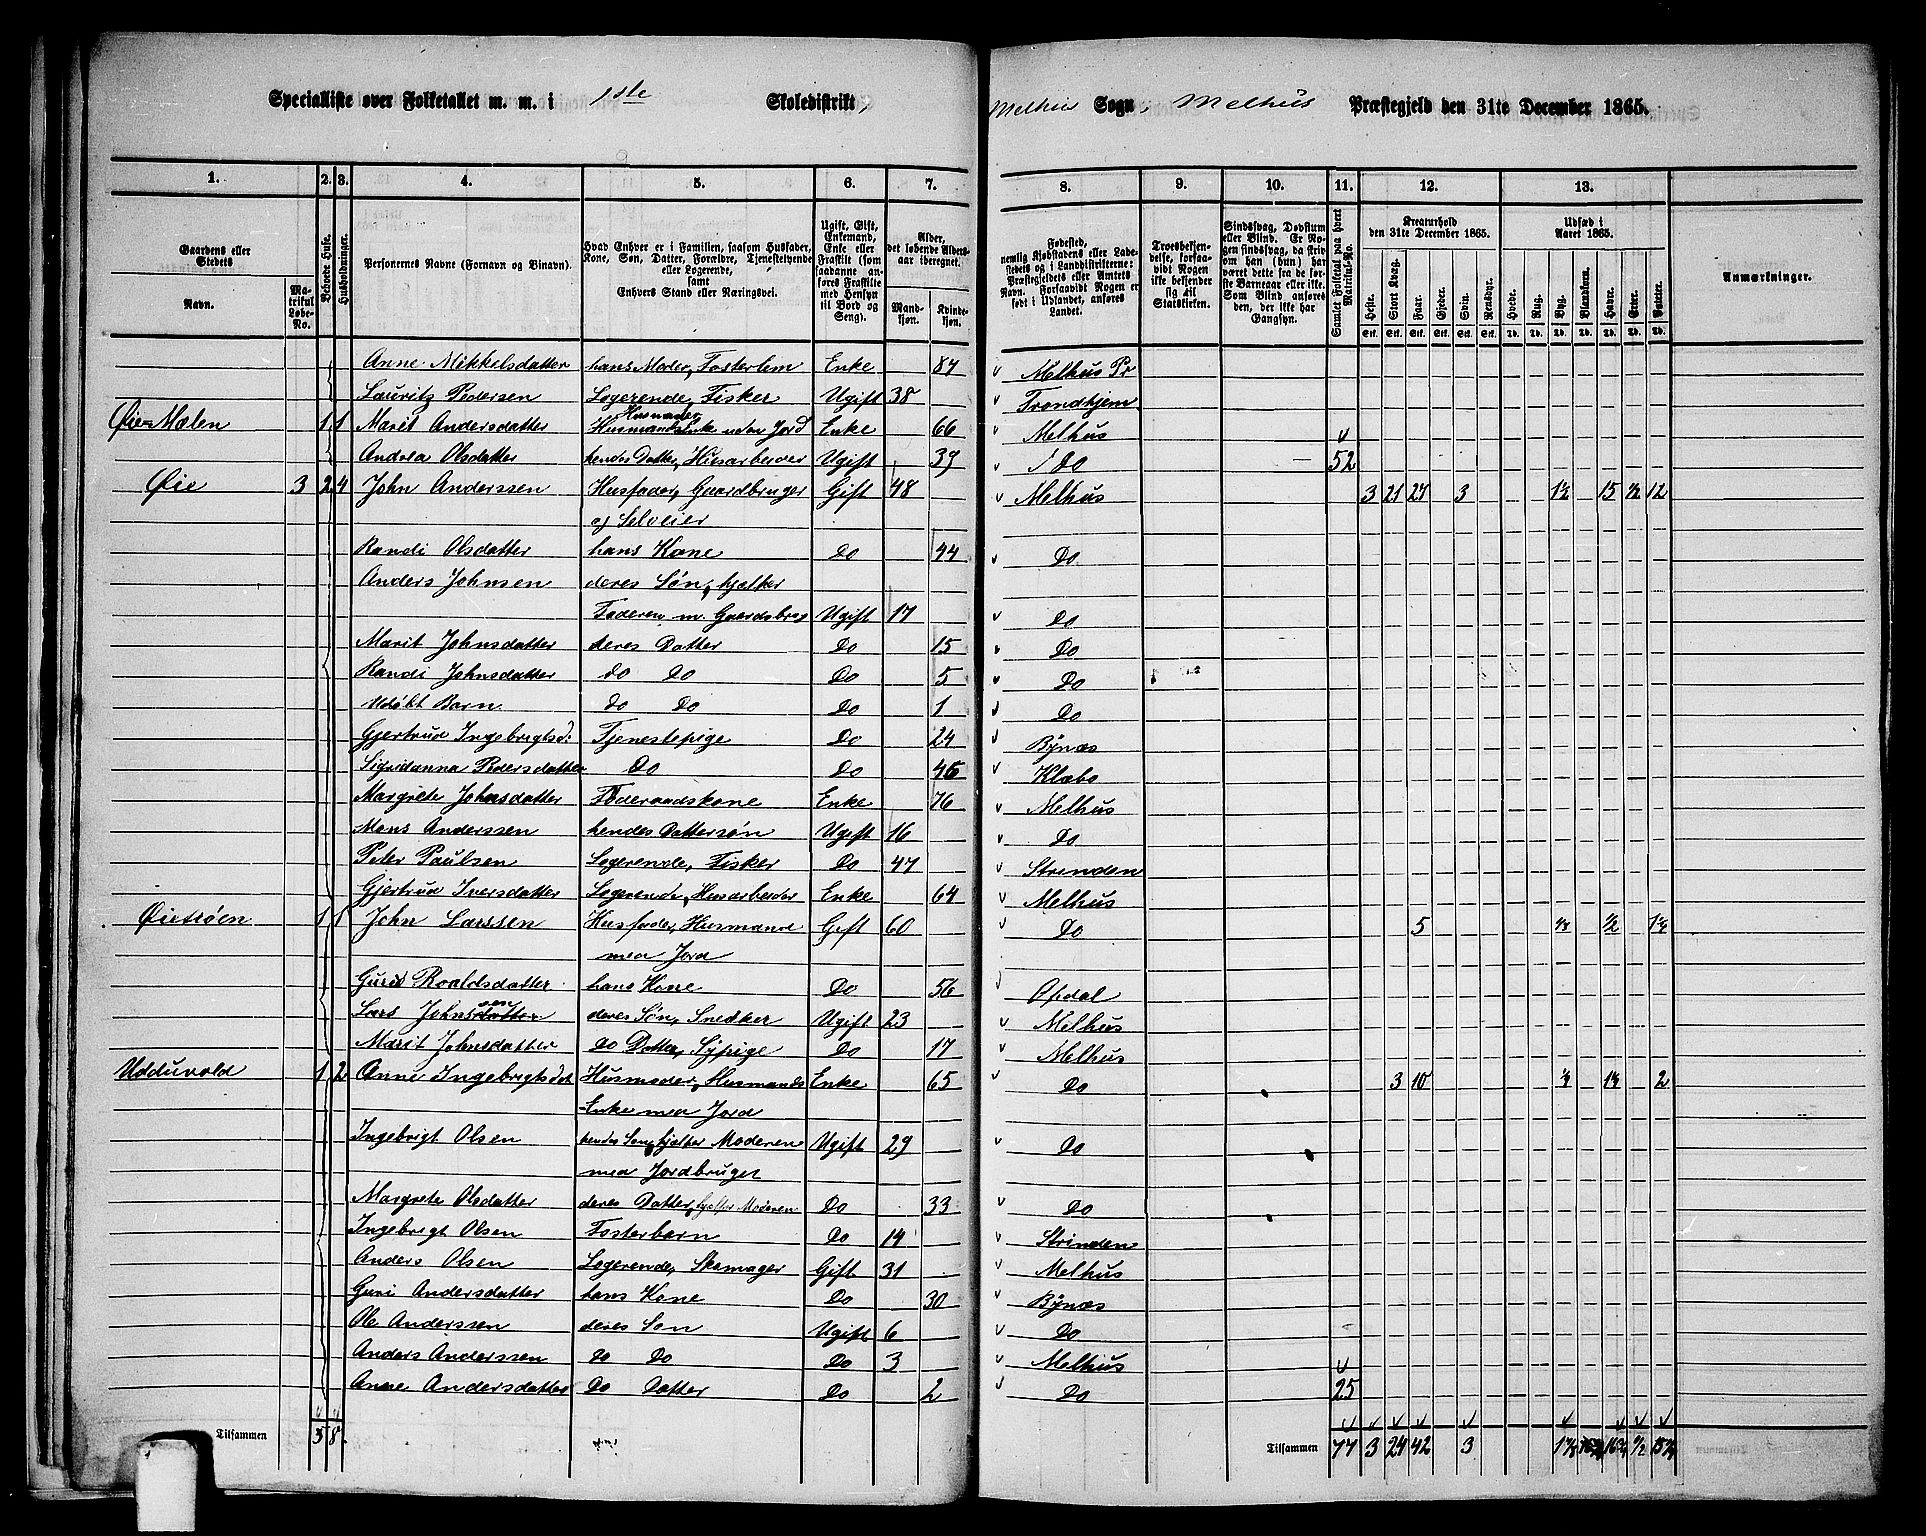 Specialliste over Folketallet m. m. i 1ste Skoledistrikt, Melhus Sogn, Melhus Præstegjeld den 31te December 1865.
1. 2. 3. 4. 5. 6. 7. 8. 9. 10. 11. 12. 13.
Gaardens eller Stedets Navn. Matrikul Løbe-No. Beboede Huse. Husholdninger. Personernes Navne (Fornavn og Binavn). Hvad Enhver er i Familien, saasom Husfader, Kone, Søn, Datter, Forældre, Tjenestetyende eller Logerende, samt Enhvers Stand eller Næringsvei. Ugift, Gift, Enkemand, Enke eller Fraskilt (som saadanne anføres Fraskilte med Hensyn til Bord og Seng). Alder, det løbende Alders-aar iberegnet. Mandkjøn. Kvindekjøn.
Fødested, nemlig Kjøbstadens eller Ladestedets og i Landdistrikterne: Præstegjeldets eller Amtets Navn. Forsaavidt Nogen er født i Udlandet, anføres Landet. Troesbekjendelse, forsaavidt Nogen ikke bekjender sig til Statskirken. Sindssvag, Døvstum eller Blind. Er Nogen sindssvag, da skrives om han (hun) har været dette fra de første Barneaar eller ikke. Som Blind anføres den, der ikke har Gangsyn. Samlet Folketal paa hvert Matrikul-No. Kreaturhold den 31te December 1865. Udsæd i Aaret 1865. Anmærkninger.
Heste. Stort Kvæg. Faar. Gjeder. Svin. Rensdyr. Hvede. Rug. Byg. Blandkorn. Havre. Erter. Poteter.
Anne Mikkelsdatter hans Moder, Fosterlem Enke 87 Melhus Pr
Lauritz Pedersen Logerende, Fisker Ugift 38 Trondhjem
Øie-Mælen 1 1 Marit Andersdatter Husmoder, Husmandsenke uden Jord Enke 66 Melhus
Andrea Olsdatter hendes Datter, Husarbeider Ugift 39 Do 52
Øie 3 2 4 John Anderssen Husfader, Gaardbruger Gift 48 Melhus 3 21 27 3 1½ 15 ½ 12
og Selveier
Randi Olsdatter hans Kone Do 44 Do
Anders Johnsen deres Søn, hjælper
Faderen m. Gaardsbrug Ugift 17 Do
Marit Johnsdatter deres Datter Do 15 Do
Randi Johnsdatter do Do Do 5 Do
Udøbt Barn Do Do Do 1 Do
Gjertrud Ingebrigtsd: Tjenestepige Do 24 Bynæs
Sigridanna Pedersdatter Do Do 46 Klæbo
Margrete Johnsdatter Føderaadskone Enke 76 Melhus
Mons Anderssen hendes Dattersøn Ugift 16 Do
Peter Paulsen Logerende, Fisker Do 47 Strinden
Gjertrud Iversdatter Logerende, Husarbeider Enke 64 Melhus
Øiesøen 1 1 John Larssen Husfader, Husmand Gift 60 Do 5 ½ 1½
med Jord
Guru Roaldsdatter hans Kone Do 56 Opdal
Lars Johnsen deres Søn, Snedker Ugift 23 Melhus
Marit Johnsdatter Do Datter, Sypige Do 17 Melhus
Udduvold 1 2 Anne Ingebrigtsdat Husmoder, Husmands Enke 65 Do 3 10 2
Enke med Jord
Ingebrigt Olsen hendes Søn, hjelper Moderen Ugift 29 Do
med Jordbruget
Margrete Olsdatter deres Datter, hjelper Moderen Do 33 Do
Ingebrigt Olsen Fosterbarn Do 14 Strinden
Anders Olsen Logerende, Skomager Gift 31 Melhus
Guri Andersdatter hans Kone Do 30 Bynæs
Ole Anderssen deres Søn Ugift 6 Do
Anders Anderssen Do Do Do 3 Melhus
Anne Andersdatter Do Datter Do 2 Do 25
Tilsammen 5 8 Tilsammen 77 3 24 42 3